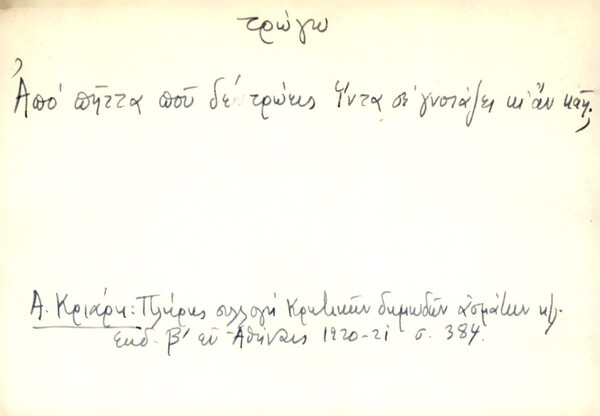 τρώγω
Ἀπό πῆττα ποῦ δέ τρώεις Ἴντα σέ γνοιάζει κι ἄν καῇ;
Α. Κριάρη: Πλήρης συλλογή Κρητικῶν δημωδῶν ᾀσμάτων κ.λ.
ἐκδ. Β' ἐν Ἀθήναις 1920-21 σ. 384.